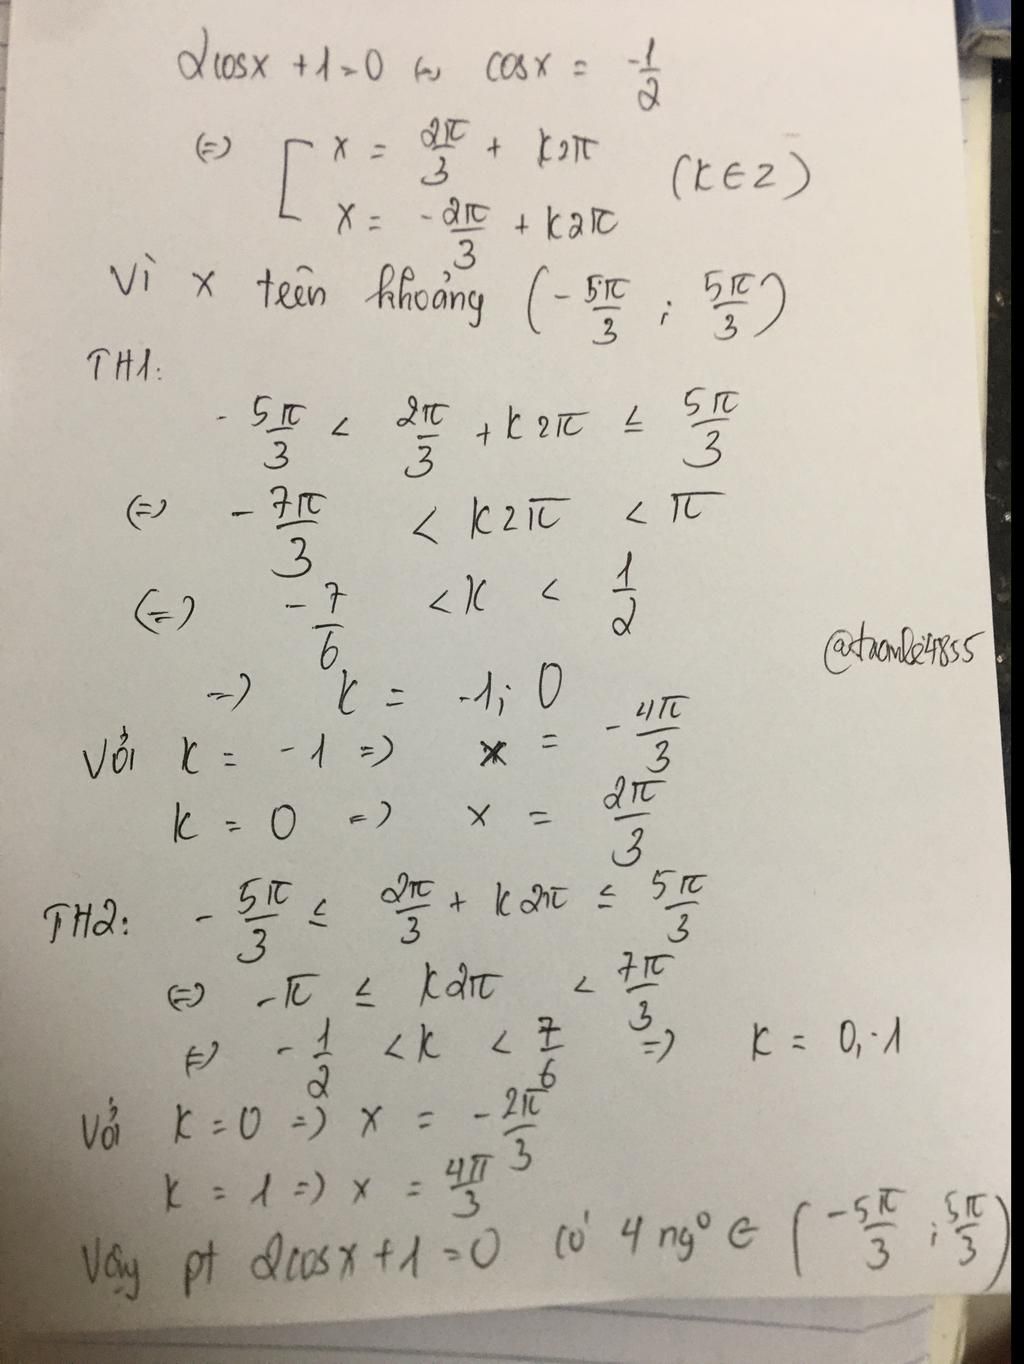 2cosx + 1 = 0 ⇔ cosx = -1/2
⇔ [ x = 2π/3 + k2π
x = -2π/3 + k2π (k ∈ Z)
Vì x trên khoảng (-5π/3 ; 5π/3)
TH1:
-5π/3 < 2π/3 + k2π ≤ 5π/3
(=) -7π/3 < k2π < π
(=) -7/6 < k < 1/2
@taomle4855
=) k = -1; 0
Với k = -1 =) x = -4π/3
k = 0 =) x = 2π/3
TH2: -5π/3 ≤ 2π/3 + k2π ≤ 5π/3
(=) -π ≤ k2π < 7π/3
(=) -1/2 < k < 7/6 =) k = 0, -1
Với k = 0 =) x = -2π/3
k = 1 =) x = 4π/3
Vậy pt 2cosx + 1 = 0 có 4 ngº ∈ (-5π/3 ; 5π/3)